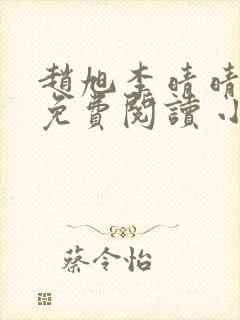 趙旭李晴晴
免費閱讀小
蔡令怡